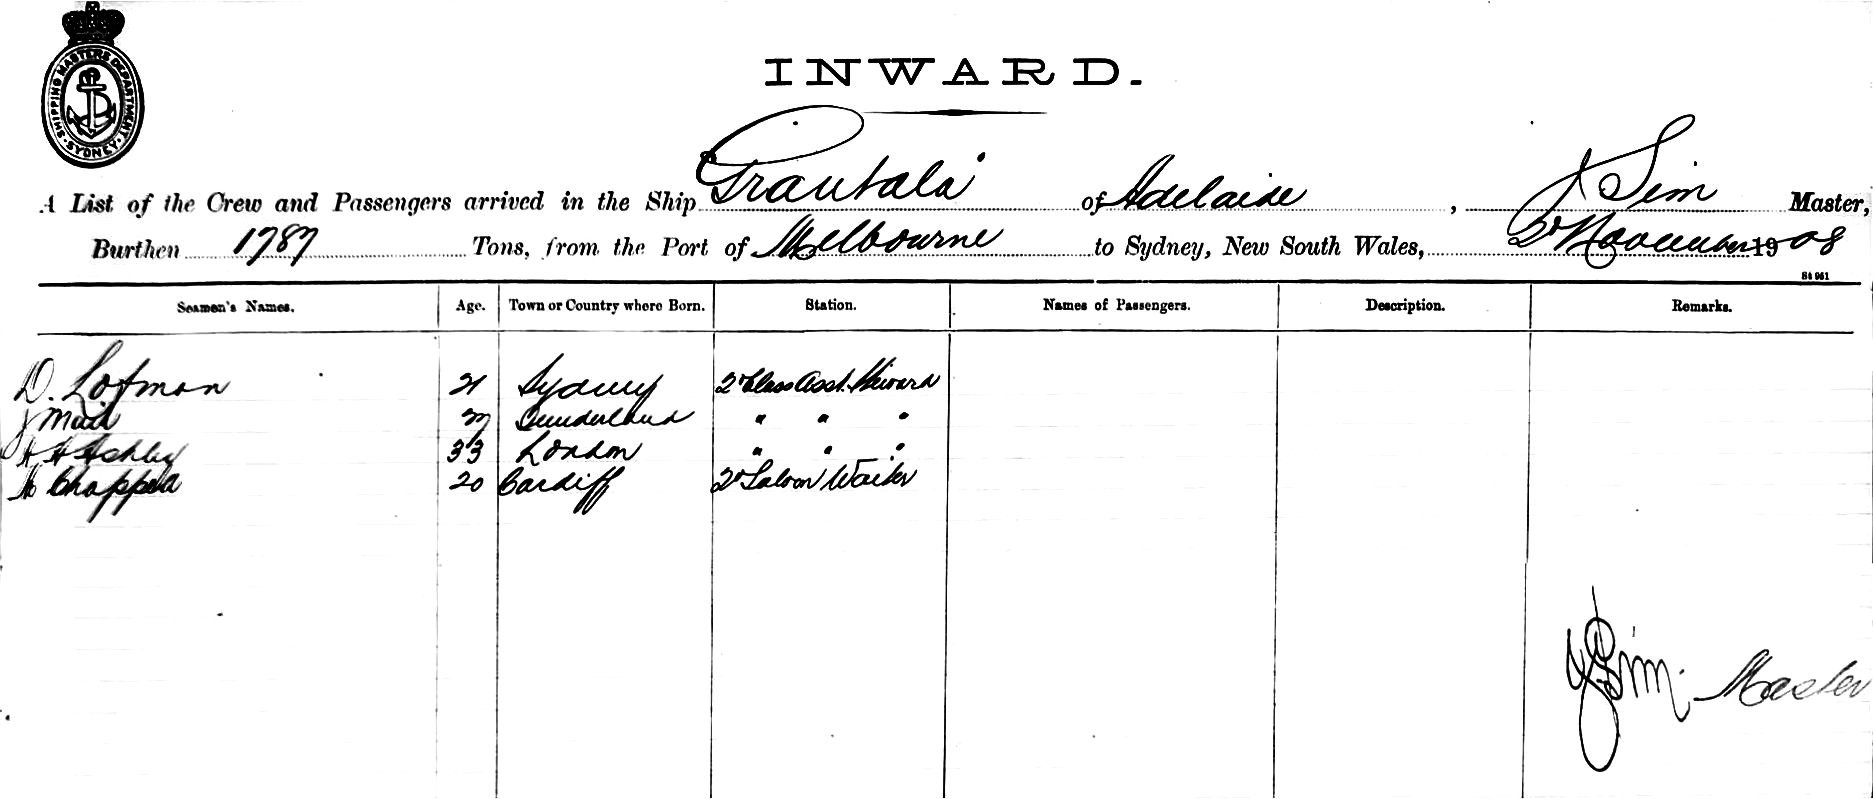 SHIPPING MASTERS DEPARTMENT · SYDNEY ·
INWARD.
A List of the Crew and Passengers arrived in the Ship Grantala of Adelaide, J Sim Master,
Burthen 1787 Tons, from the Port of Melbourne to Sydney, New South Wales, 2d November 1908
St 961
Seamen's Names. Age. Town or Country where Born. Station. Names of Passengers. Description. Remarks.
D. Lotman 21 Sydney 2d Class Asst. Steward
J 27 Sunderland " " "
Ashley 33 London " " "
Chappell 20 Cardiff 2d Saloon Waiter
J Sim. Master